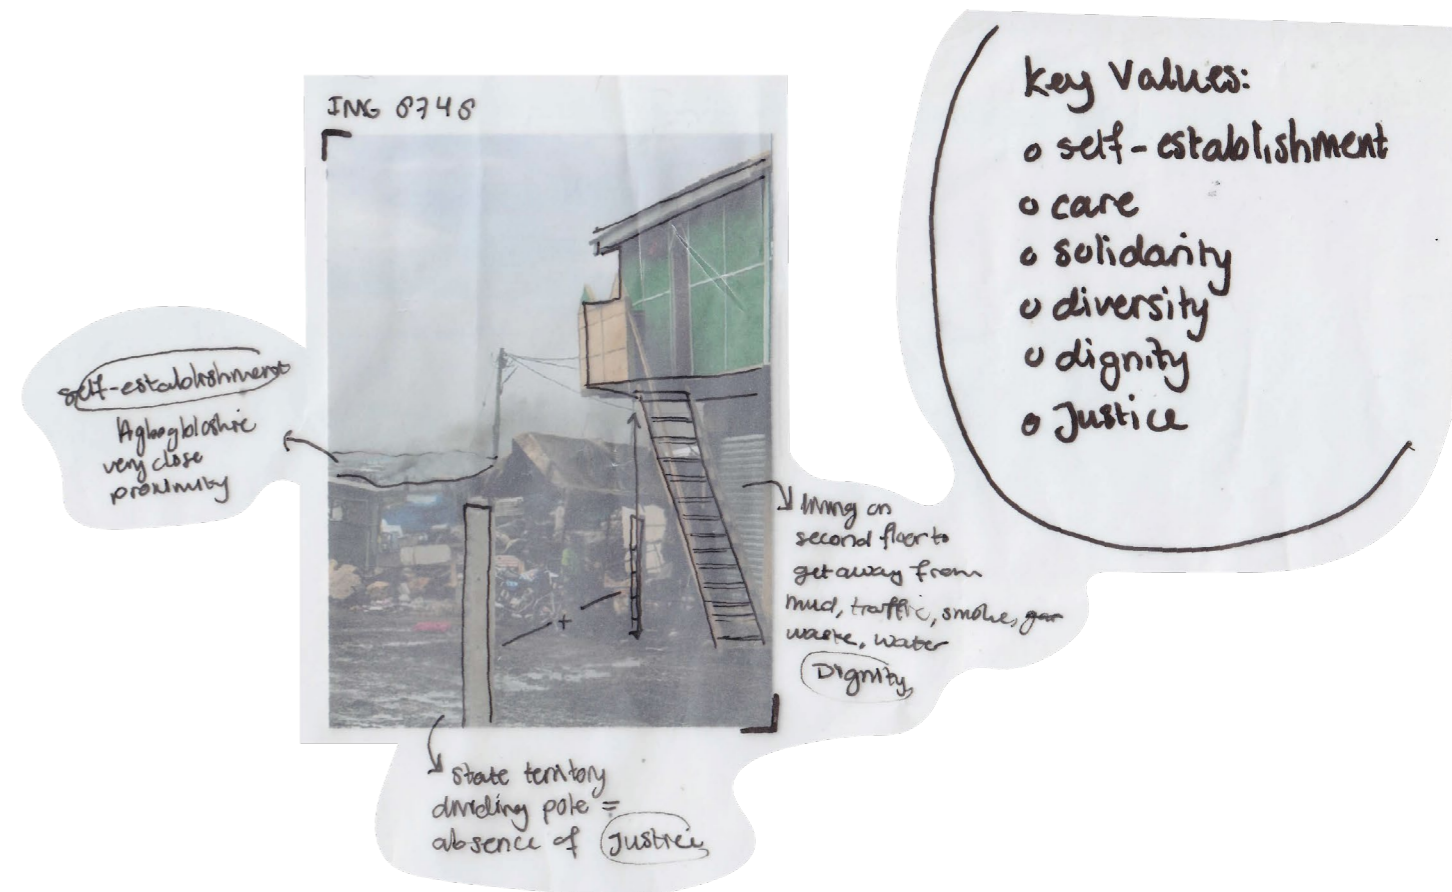 IMG 8748
key values:
o self-establishment
o care
o solidarity
o diversity
o dignity
o Justice
self-establishment
Agbogbloshie
very close
proximity
living on
second floor to
get away from
mud, traffic, smoke,
waste, water
Dignity
+
state territory
dividing pole =
absence of Justice